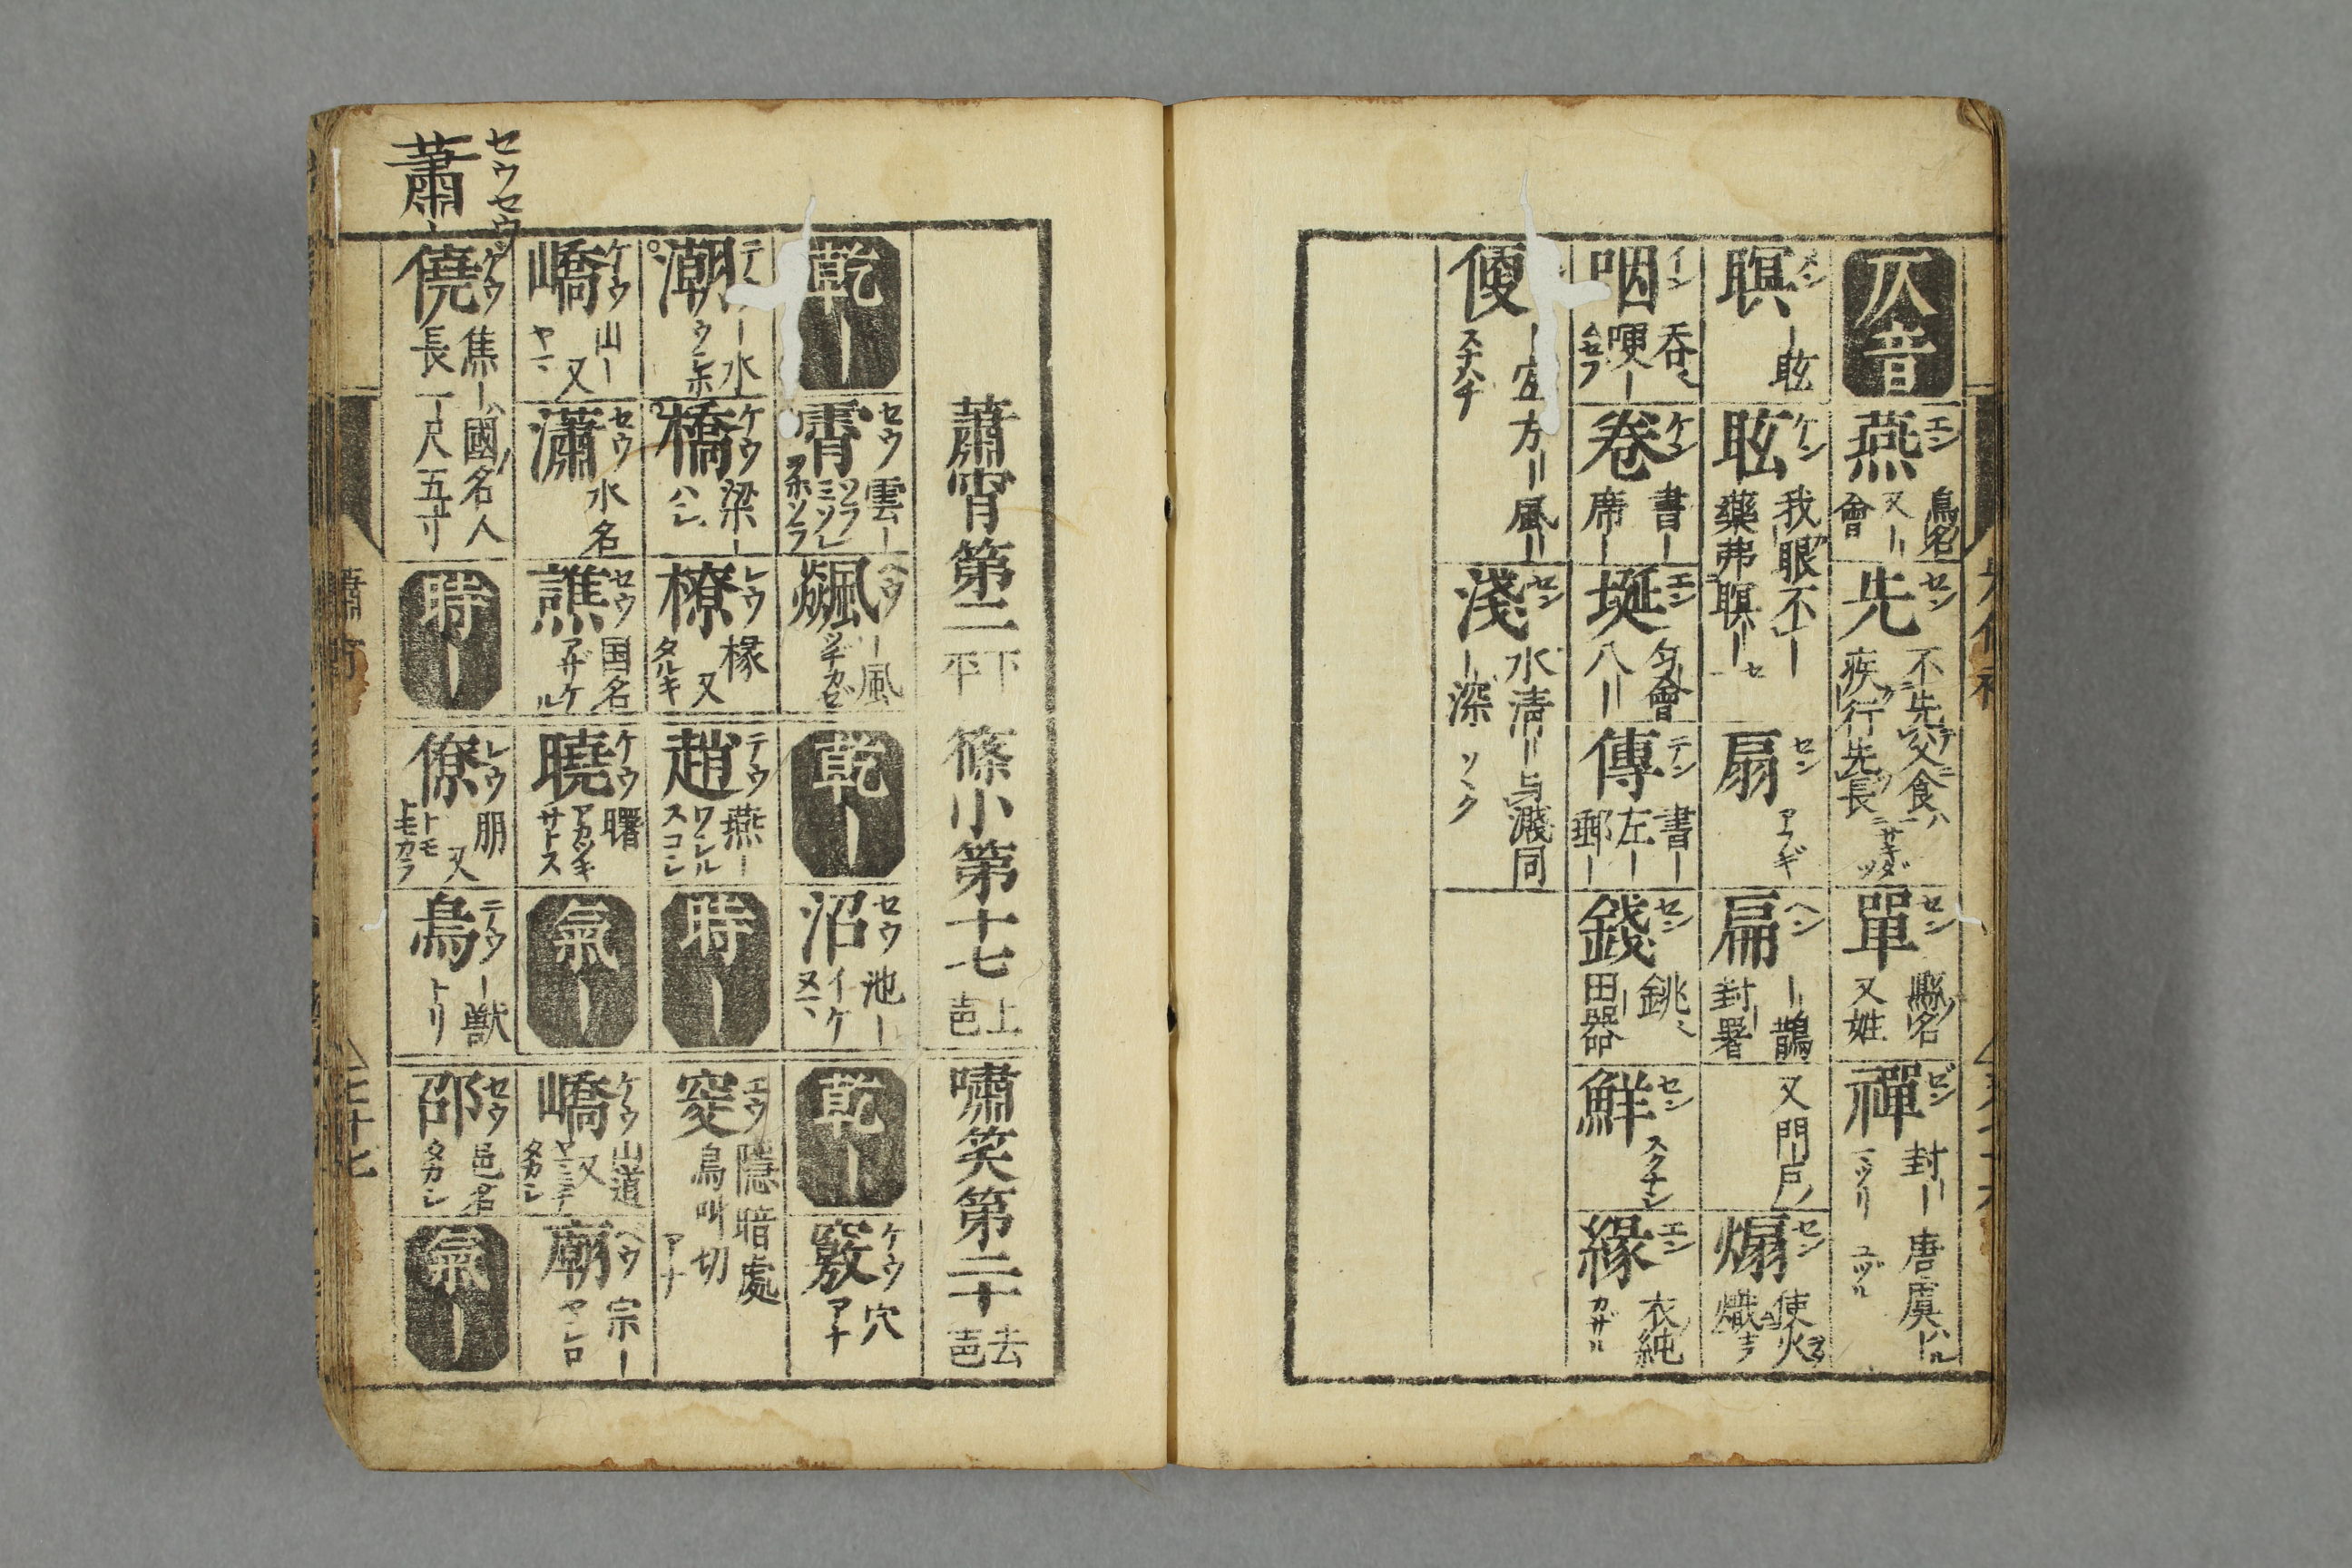 仄音
燕 エン 鳥名 又ー 會
先 セン 不先父食ハ 疾行先長 サキダツ
單 セン 縣名 又姓
禪 ゼン 封ー 唐虞ハー ル ユヅル
瞑 メン ー眩
眩 ケン 我眼不ー 藥弗瞑ーセ
扇 セン アフギ
扁 ヘン ー鵲 封署 又門戸ノ
煽 セン 使火 熾
咽 イン 吞 哽ー ムセフ
卷 ケン 書ー 席ー
埏 エン 会會 八ー
傳 テン 書ー 左ー 郵ー
錢 セン 銚 田器
鮮 セン スクナシ
緣 エン 衣純 カザル
便 ー宜 方ー 風ー スナハチ
淺 セン 水淸ー与濺同 ー深
蕭宵第二 下平 篠小第十七 上声 嘯笑第二十 去声
乾ー
霄 セウ 雲ー ソラ ミゾレ
飆 ヘウ ー風 ツヂカゼ
乾ー
沼 セウ 池ー イケ ヌマ
乾ー
竅 ケウ 穴 アナ
潮 テウ ー水 ウシホ
橋 ケウ 梁ー ハシ
橑 レウ 椽 又 タルキ
趙 テウ 燕ー ワシル スコシ
時ー
窔 エウ 隱暗處 鳥叫切 アナ
嶠 ケウ 山ー 又
瀟 セウ 水名
譙 セウ 国名 アザケル
曉 ケウ 曙 アカツキ サトス
氣ー
嶠 ケウ 山道 又 タカシ
廟 ベウ 宗ー ヤシロ
蕭 セウセウ
僥 ゲウ 焦ー國名人 長一尺五寸
時ー
僚 レウ 朋 又 トモ トモカラ
鳥 テウ ー獣 トリ
邵 セウ 邑名 タカシ
氣ー